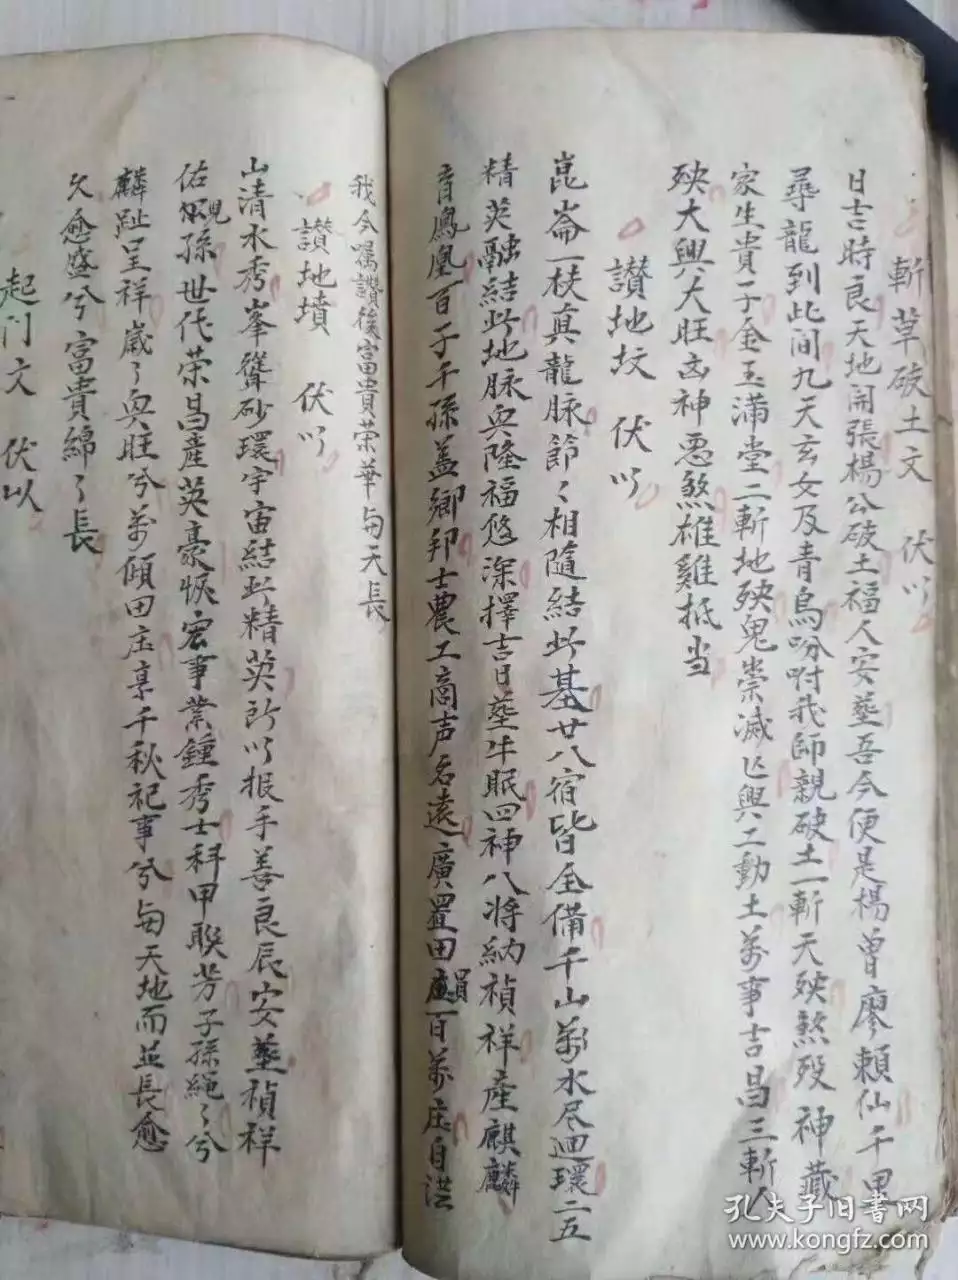 斬草破土文　伏以
日吉時良天地開張楊公破土福人安塟吾今便是楊曾廖賴仙千里
尋龍到此间九天玄女及青鳥吩咐我師親破土一斬天殃煞殁神藏
家生貴子金玉滿堂二斬地殃鬼祟滅亾興工動土萬事吉昌三斬人
殃大興大旺凶神悪煞雄雞抵当
讃地坟　伏以
崑崙一扶真龍脉節〻相隨結此基廿八宿皆全備千山萬水尽迴環二五
精英融結此地脉興隆福悠深擇吉日塟牛眠四神八将納禎祥產麒麟
育鳳凰百子千孫盖鄉邦士農工商声名遠廣置田園一日萬庄自洪
我今嘱讃後富貴荣華与天長
讃地墳　伏以
山清水秀峯聳砂環宇宙結此精英所以报手善良辰安塟禎祥
佑觀孫世代荣昌產英豪恢宏事業鍾秀士科甲聮芳子孫繩〻兮
麟趾呈祥嵗〻興旺兮萬傾田庄享千秋祀事兮与天地而並長愈
久愈盛兮富貴綿〻長
起门文　伏以
孔夫子旧书网
www.kongfz.com